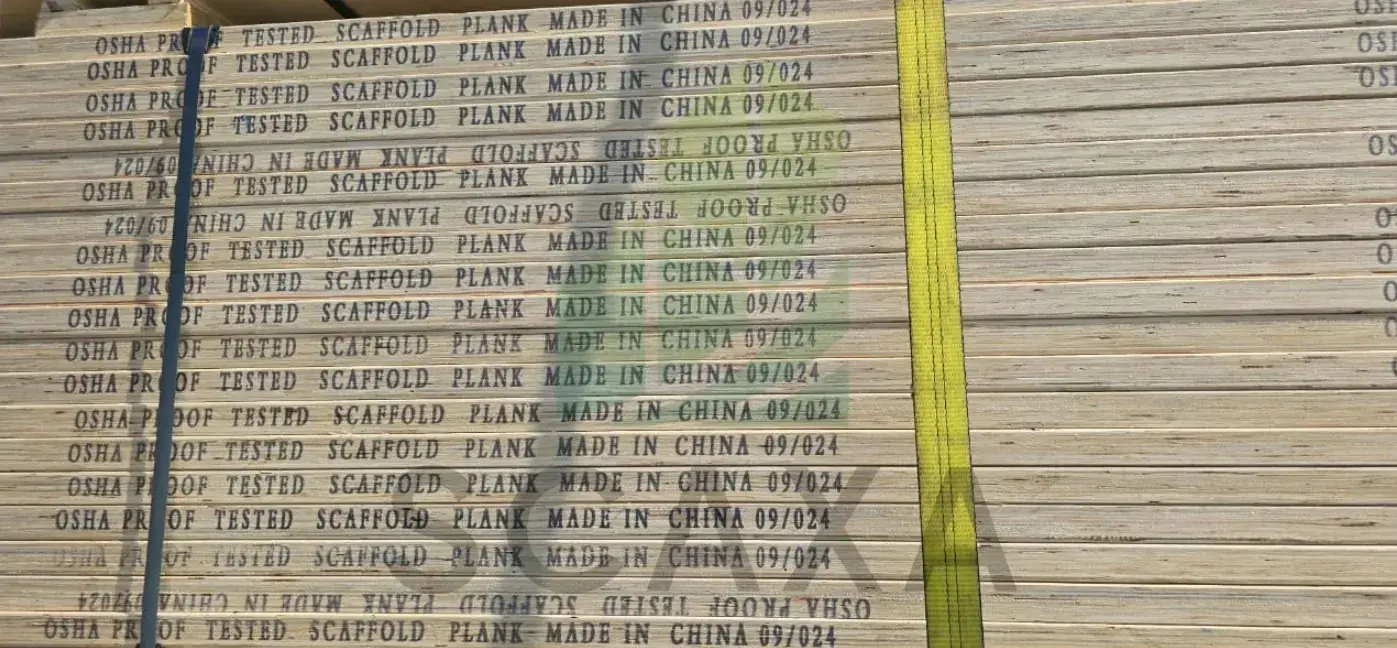 OSHA PROOF TESTED SCAFFOLD PLANK MADE IN CHINA 09/024
OS
OSHA PROOF TESTED SCAFFOLD PLANK MADE IN CHINA 09/024
OS
OSHA PROOF TESTED SCAFFOLD PLANK MADE IN CHINA 09/024
OS
OSHA PROOF TESTED SCAFFOLD PLANK MADE IN CHINA 09/024
OSHA PROOF TESTED SCAFFOLD PLANK MADE IN CHINA 09/024
OS
OSHA PROOF TESTED SCAFFOLD PLANK MADE IN CHINA 09/024
OSHA PROOF TESTED SCAFFOLD PLANK MADE IN CHINA 09/024
O
OSHA PROOF TESTED SCAFFOLD PLANK MADE IN CHINA 09/024
O
OSHA PROOF TESTED SCAFFOLD PLANK MADE IN CHINA 09/024
O
OSHA PROOF TESTED SCAFFOLD PLANK MADE IN CHINA 09/024
OSHA PROOF TESTED SCAFFOLD PLANK MADE IN CHINA 09/024
OSHA PROOF TESTED SCAFFOLD PLANK MADE IN CHINA 09/024
OSHA PROOF TESTED SCAFFOLD PLANK MADE IN CHINA 09/024
OSHA PROOF TESTED SCAFFOLD PLANK MADE IN CHINA 09/024
OSHA PROOF TESTED SCAFFOLD PLANK MADE IN CHINA 09/024
OSHA PROOF TESTED SCAFFOLD PLANK MADE IN CHINA 09/024
OSHA PROOF TESTED SCAFFOLD PLANK MADE IN CHINA 09/024
OSHA PROOF TESTED SCAFFOLD PLANK MADE IN CHINA 09/024
OSHA PROOF TESTED SCAFFOLD PLANK MADE IN CHINA 09/024
SCAXA